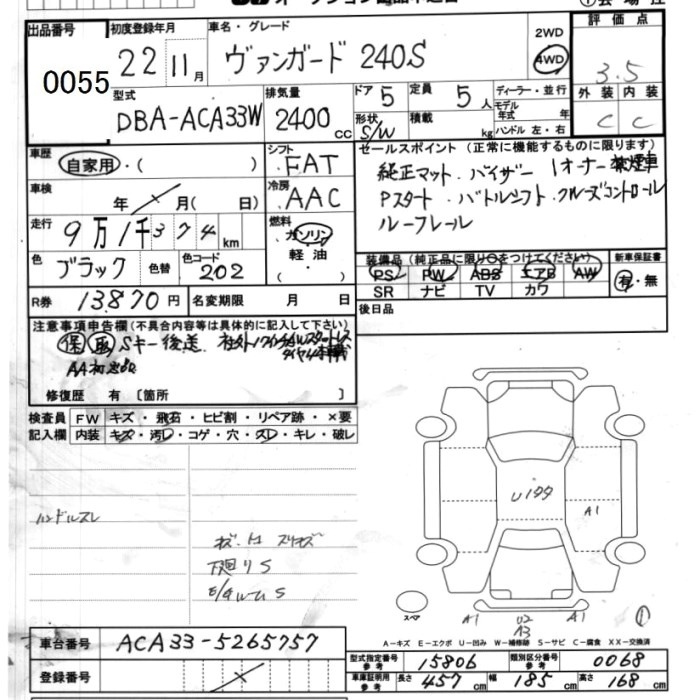 出品番号
0055
初度登録年月
22 11月
車名・グレード
ヴァンガード 240S
2WD
4WD
評価点
3.5
外装 内装
C C
型式
DBA-ACA33W
排気量
2400 cc
ドア 5
形状 S/W
定員 5人
積載 kg
ディーラー・並行
モデル年式 年
ハンドル 左・右
車歴
自家用・( )
シフト
FAT
セールスポイント (正常に機能するものに限ります)
純正マット・バイザー 1オーナー 禁煙車
Pスタート・パドルシフト・クルーズコントロール
ルーフレール
車検
年 月( 日)
冷房
AAC
走行
9万1千374km
燃料
ガソリン
軽油
・( )
色
ブラック 色替
色コード
202
装備品 (純正品に限り○をつけてください)
PS PW ABS エアB AW
SR ナビ TV カワ
新車保証書
有・無
R券 13870円
名変期限 月 日
後日品
注意事項申告欄 (不具合内容等は具体的に記入して下さい)
保 取 Sキー後送
AA初出品
修復歴 有 〔箇所 〕
検査員記入欄
FW キズ・飛石・ヒビ割・リペア跡・×要
内装 キズ・汚レ・コゲ・穴・スレ・キレ・破レ
ハンドルスレ
下廻りS
U177
A1
スペア
A1 U2 A1
A3
1
A-キズ E-エクボ U-凹み W-補修跡 S-サビ C-腐食 XX-交換済
車台番号 ACA33-5265757
登録番号
型式指定番号参考 15806
類別区分番号参考 0068
車庫証明用参考 長さ 457cm 幅 185cm 高さ 168cm